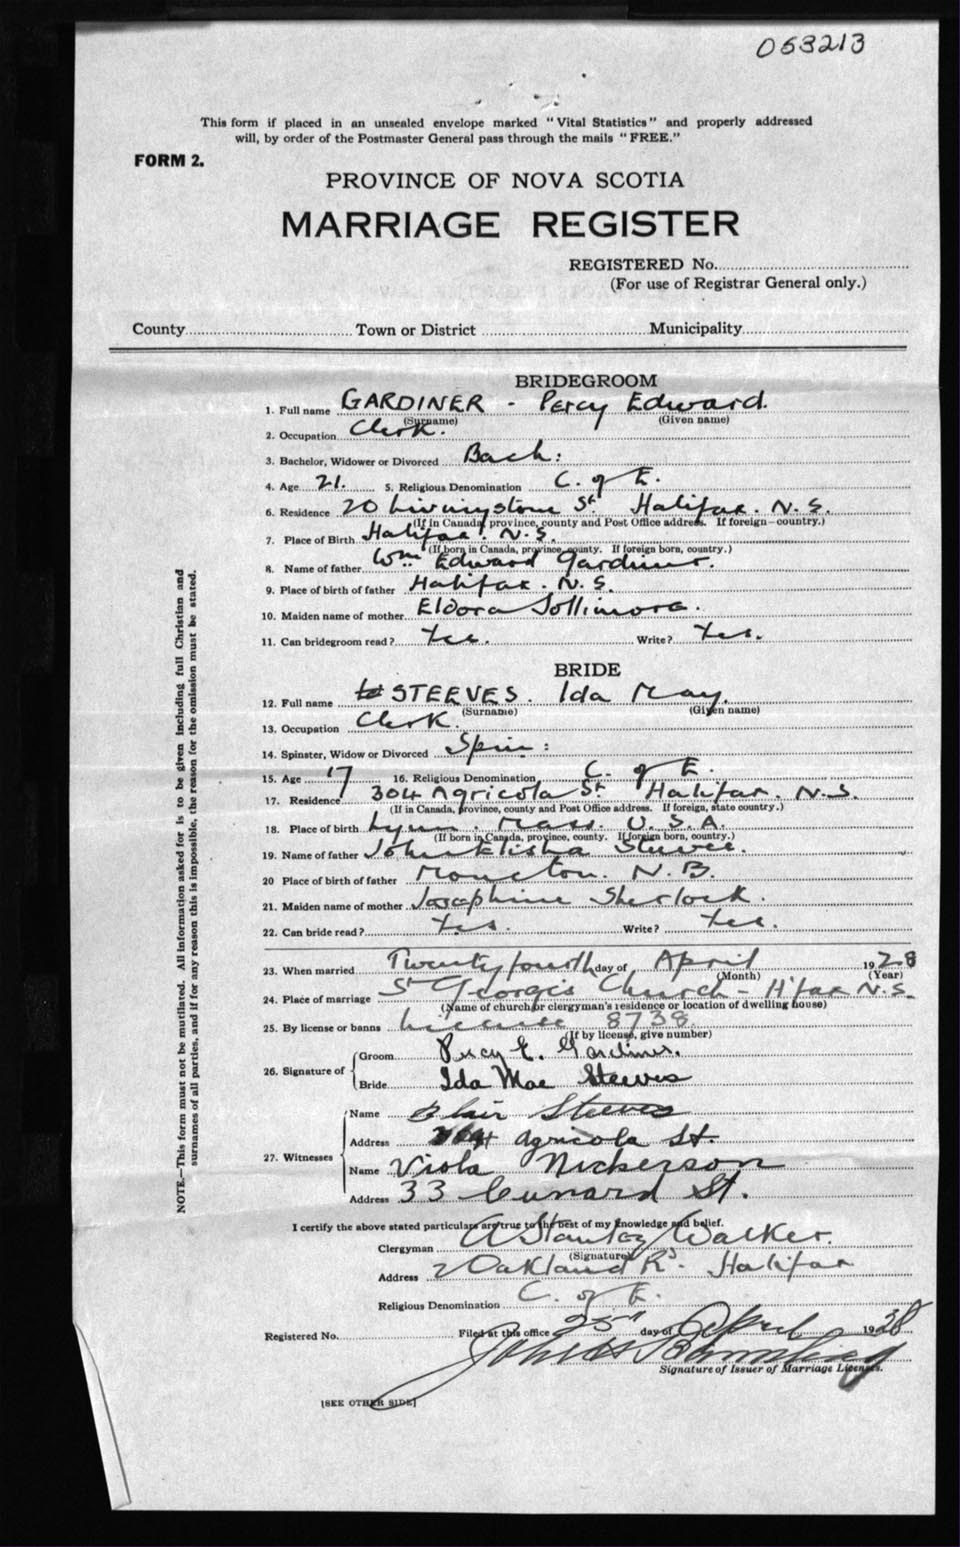 053213
This form if placed in an unsealed envelope marked "Vital Statistics" and properly addressed
will, by order of the Postmaster General pass through the mails "FREE."
FORM 2.
PROVINCE OF NOVA SCOTIA
MARRIAGE REGISTER
REGISTERED No.
(For use of Registrar General only.)
County Town or District Municipality
BRIDEGROOM
1. Full name GARDINER - Percy Edward.
(Surname) (Given name)
2. Occupation Clerk.
3. Bachelor, Widower or Divorced Bach:
4. Age 21. 5. Religious Denomination C. of E.
6. Residence 20 Livingstone St. Halifax. N.S.
(If in Canada, province, county and Post Office address. If foreign—country.)
7. Place of Birth Halifax. N.S.
(If born in Canada, province, county. If foreign born, country.)
8. Name of father Wm. Edward Gardiner.
9. Place of birth of father Halifax. N.S.
10. Maiden name of mother Eldora Jollimore.
11. Can bridegroom read? Yes. Write? Yes.
BRIDE
12. Full name STEEVES. Ida May.
(Surname) (Given name)
13. Occupation Clerk.
14. Spinster, Widow or Divorced Spin:
15. Age 17 16. Religious Denomination C. of E.
17. Residence 304 Agricola St. Halifax. N.S.
(If in Canada, province, county and Post Office address. If foreign, state country.)
18. Place of birth Lynn. Mass. U.S.A.
(If born in Canada, province, county. If foreign born, country.)
19. Name of father John Elisha Steeves.
20 Place of birth of father Moncton. N.B.
21. Maiden name of mother Josephine Sherlock.
22. Can bride read? Yes. Write? Yes.
23. When married Twenty fourth day of April 1928
(Month) (Year)
24. Place of marriage St Georges Church - H'fax N.S.
(Name of church or clergyman's residence or location of dwelling house)
25. By license or banns License 8738
(If by license, give number)
26. Signature of
Groom Percy E. Gardiner.
Bride Ida Mae Steeves
27. Witnesses
Name Blair Steeves
Address Agricola St.
Name Viola Nickerson
Address 33 Cunard St.
I certify the above stated particulars are true to the best of my knowledge and belief.
Clergyman A Stanley Walker.
(Signature)
Address 2 Oakland Rd. Halifax
Religious Denomination C. of E.
Registered No. Filed at this office 25th day of April 1928
Signature of Issuer of Marriage Licenses.
[SEE OTHER SIDE]
NOTE—This form must not be mutilated. All information asked for is to be given including full Christian and
surnames of all parties, and if for any reason this is impossible, the reason for the omission must be stated.